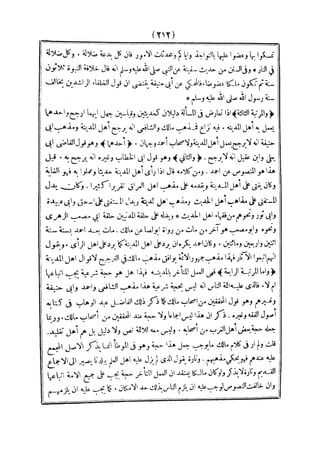 (٢١٢)
تمسكوا بها وعضوا عليها بالنواجذ وايا كم ومحدثات الامور فان كل بدعة ضلالة. وكل ضلالة
في النار * وفي السنن من حديث سفينة عن النبي صلى الله عليه وسلم انه قال خلافة النبوة ثلاثون
سنة ثم تكون ملكا عضوضا، فالمحكي عن أبي حنيفة يقتضي ان قول الخلفاء الراشدين
سنة رسول الله صلى الله عليه وسلم *
﴿والمرتبة الثالثة﴾ اذا تعارض في المسألة دليلان كحديثين وقياسين جهل ايهما ارجح واحدهما
يعمل به أهل المدينة. ففيه نزاع فمذهب مالك والشافعي انه يرجح أهل المدينة ومذهب ابي
حنيفة انه لا يرجح بعمل أهل المدينة ولاصحاب أحمد وجهان. ﴿أحدهما﴾ وهو قول القاضي ابي
يعلى وابن عقيل انه لا يرجح. ﴿والثاني﴾ وهو قول ابي الخطاب وغيره انه يرجح به. قيل
هذا هو المنصوص عن احمد. ومن كلامه قال اذا رأى أهل المدينة حديثا وعملوا به فهو الغاية
وكان يفتي على مذهب أهل المدينة ويقدمه على مذهب اهل العراق تقريرا كثيرا. وكان يدل
المستفتي على مذاهب أهل الحديث ومذهب اهل المدينة ويدل المستفتي على اسحق وابي عبيد
وابي ثور ونحوهم من فقهاء اهل الحديث * ويدله على حلقة المدنيين حلقة ابي مصعب الزهرى
ونحوه وابو مصعب هو آخر من مات من رواة الموطأ عن مالك. مات بعد احمد بسنة سنة
اثنين واربعين ومائتين. وكان احمد يكره ان يرد على اهل المدينة كما يرد على اهل الرأى. ويقول
انهم اتبعوا الآثار فهذا مذهب جمهور الأئمة يوافق مذهب مالك في الترجيح لاقوال اهل المدينة
﴿واما المرتبة الرابعة﴾ فهي العمل المتأخر بالمدينة فهذا هل هو حجة شرعية يجب اتباعها
ام لا. فالذي عليه أئمة الناس انه ليس بحجة شرعية هذا مذهب الشافعي واحمد وابي حنيفة
وغيرهم وهو قول المحققين من اصحاب مالك كما ذكر ذلك الفاضل عبد الوهاب في كتابه
أصول الفقه وغيره. ذكر ان هذا ليس اجماعا ولا حجة عند المحققين من أصحاب مالك. وربما
جعله حجة بعض أهل المغرب من أصحابه. وليس معه للأئمة نص ولا دليل بل هم أهل تقليد.
قلت ولم ار في كلام مالك ما يوجب جعل هذا حجة وهو في الموطأ انما يذكر الاصل المجمع
عليه عندهم فهو يحكي مذهبهم. وتارة يقول الذي لم يزل عليه اهل العلم ببلدنا يصير الى الاجماع
القديم وتارة لا يذكر ولو كان مالك يعتقد ان العمل المتأخر حجة يجب على جميع الامة اتباعها
وان خالفت النصوص لوجب عليه ان يلزم الناس بذلك حد الامكان. كما يجب عليه ان يلزمهم